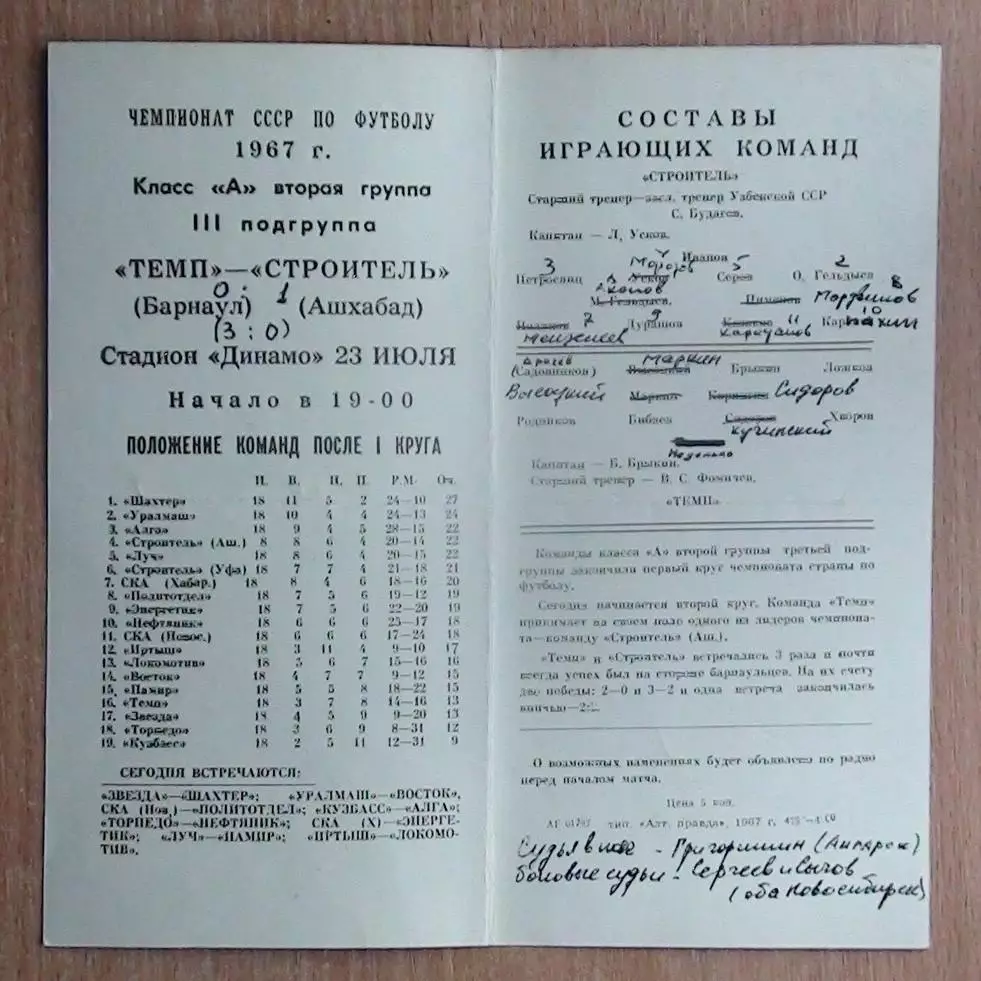 ЧЕМПИОНАТ СССР ПО ФУТБОЛУ
1967 г.
Класс «А» вторая группа
III подгруппа
«ТЕМП»—«СТРОИТЕЛЬ»
0 : 1
(Барнаул) (Ашхабад)
(3 : 0)
Стадион «Динамо» 23 ИЮЛЯ
Начало в 19-00
ПОЛОЖЕНИЕ КОМАНД ПОСЛЕ I КРУГА
И. В. Н. П. Р.М. Оч.
1. «Шахтер» 18 11 5 2 24—10 27
2. «Уралмаш» 18 10 4 4 24—13 24
3. «Алга» 18 9 4 5 28—15 22
4. «Строитель» (Аш.) 8 8 6 4 20—14 22
5. «Луч» 18 8 6 4 20—15 22
6. «Строитель» (Уфа) 18 7 7 4 21—18 21
7. СКА (Хабар.) 18 8 4 6 18—16 20
8. «Политотдел» 18 7 5 6 19—12 19
9. «Энергетик» 18 7 5 6 22—20 19
10. «Нефтяник» 18 6 6 6 25—17 18
11. СКА (Новос.) 18 6 6 6 17—24 18
12. «Иртыш» 18 3 11 4 9—10 17
13. «Локомотив» 18 5 6 7 15—16 16
14. «Восток» 18 4 7 7 9—12 15
15. «Памир» 18 5 5 8 18—22 15
16. «Темп» 18 3 7 8 14—16 13
17. «Звезда» 18 4 5 9 9—20 13
18. «Торпедо» 18 3 6 9 8—31 12
19. «Кузбасс» 18 2 5 11 12—31 9
СЕГОДНЯ ВСТРЕЧАЮТСЯ:
«ЗВЕЗДА»—«ШАХТЕР»; «УРАЛМАШ»—«ВОСТОК»,
СКА (Нов.)—«ПОЛИТОТДЕЛ»; «КУЗБАСС»—«АЛГА»;
«ТОРПЕДО»—«НЕФТЯНИК»; СКА (Х)—«ЭНЕРГЕ-
ТИК»; «ЛУЧ»—«ПАМИР»; «ИРТЫШ»—«ЛОКОМО-
ТИВ».
СОСТАВЫ
ИГРАЮЩИХ КОМАНД
«СТРОИТЕЛЬ»
Старший тренер—засл. тренер Узбекской ССР
С. Будагов.
Капитан — Л. Усков.
Иванов
3 5 2
Усков Серов О. Гельдыев
М. Гельдыев. 8
7 9 11 10
Дурдиев
Маркин
(Садовников) Брыкин Ложков
Высоцкий Маркин Сидоров
Родников Бибаев Сидоров Хворов
Кучинский
Капитан — Б. Брыкин.
Старший тренер — В. С. Фомичев.
«ТЕМП»
Команды класса «А» второй группы третьей под-
группы закончили первый круг чемпионата страны по
футболу.
Сегодня начинается второй круг. Команда «Темп»
принимает на своем поле одного из лидеров чемпиона-
та—команду «Строитель» (Аш.).
«Темп» и «Строитель» встречались 3 раза и почти
всегда успех был на стороне барнаульцев. На их счету
две победы: 2—0 и 3—2 и одна встреча закончилась
вничью—2:2.
О возможных изменениях будет объявлено по радио
перед началом матча.
Цена 5 коп.
тип. «Алт. правда», 1967 г.
Судья в поле - Григоришин (Ангарск)
боковые судьи - Сергеев и Сычов
(оба Новосибирск)